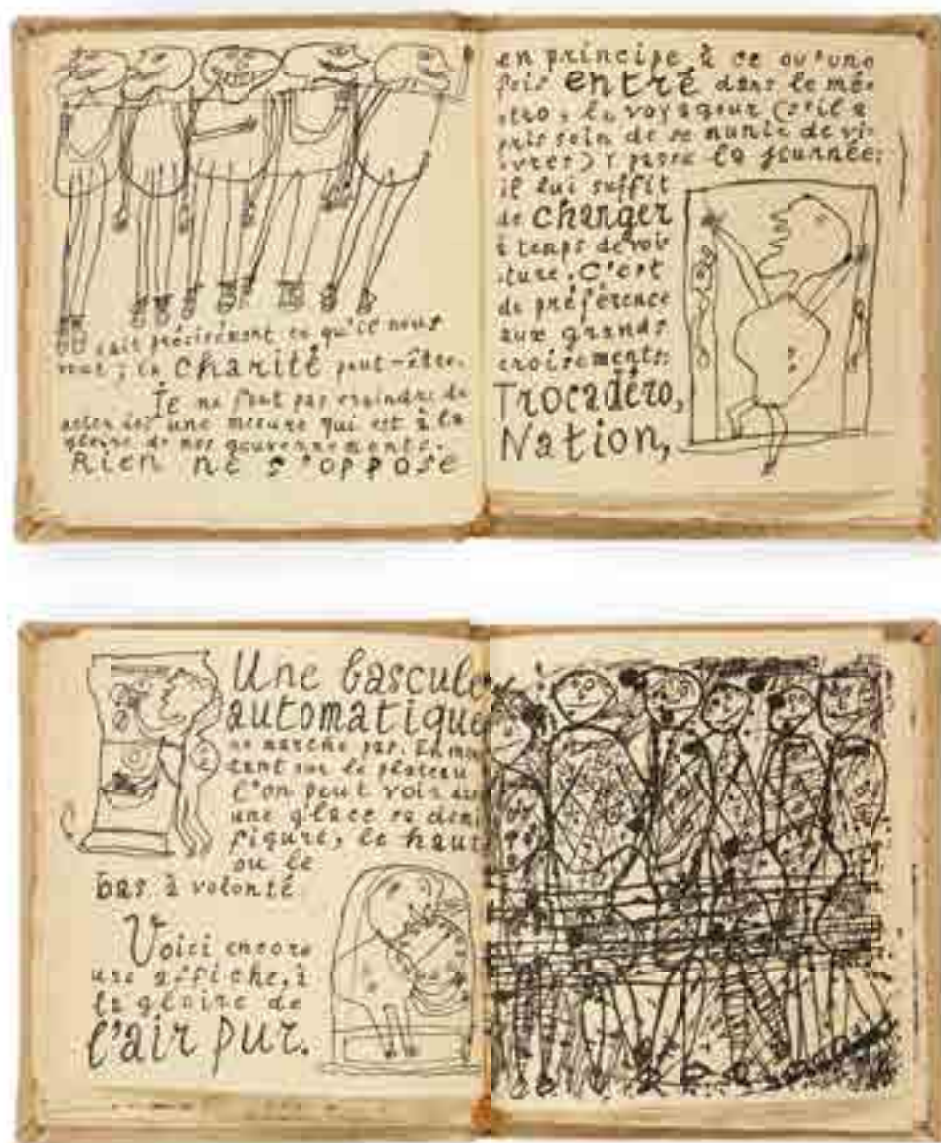 sait précisément ce qu'il nous
vaut ; la charité peut-être.
Il ne faut pas craindre de
une mesure qui est à la
gloire de nos gouvernements.
Rien ne s'oppose
en principe à ce qu'une
fois entré dans le mé-
tro, le voyageur (s'il a
pris soin de se munir de vi-
vres) y passe la journée:
il lui suffit
de changer
à temps de voi-
ture. C'est
de préférence
aux grands
croisements:
Trocadéro,
Nation,
Une bascule
automatique
ne marche pas. En mon-
tant sur le plateau
l'on peut voir dans
une glace sa demi
figure, le haut
ou le
bas à volonté
Voici encore
une affiche, à
la gloire de
l'air pur.